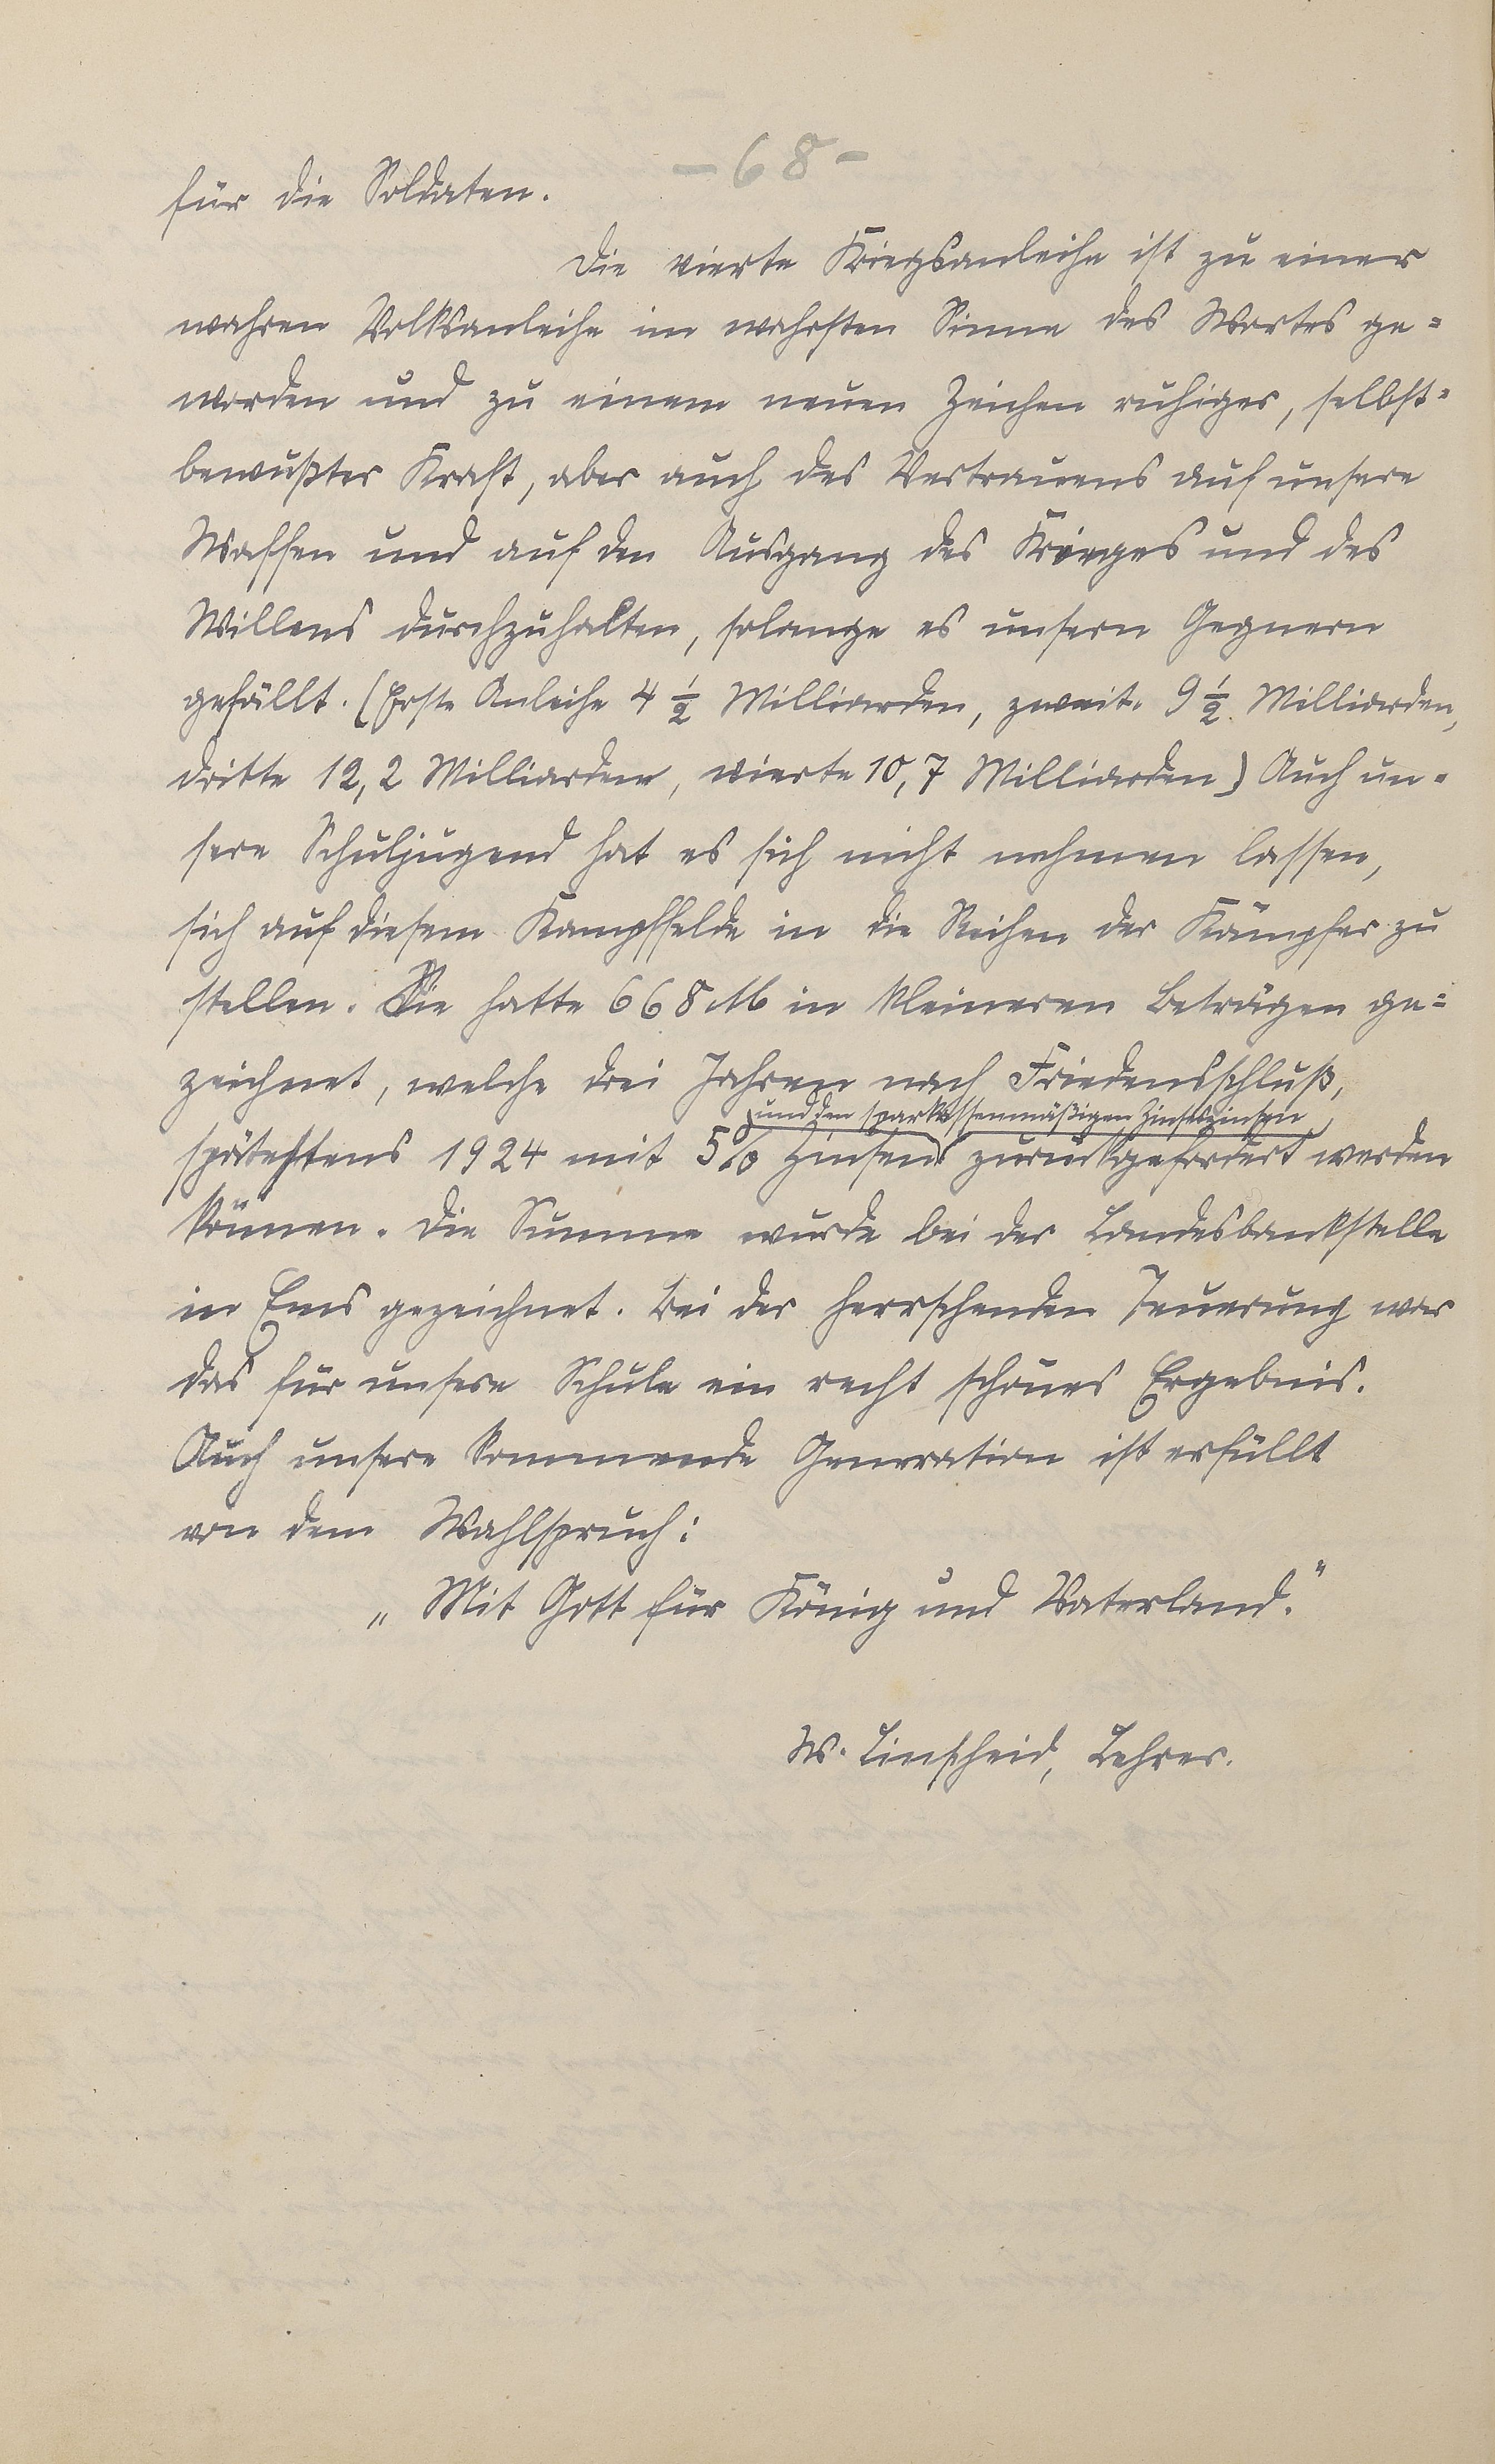 - 68 -
für die Soldaten.
Die vierte Kriegsanleihe ist zu einer
wahren Volksanleihe im wahrsten Sinne des Wortes ge=
worden und zu einem neuen Zeichen ruhiger, selbst=
bewußter Kraft, aber auch des Vertrauens auf unsere
Waffen und auf den Ausgang des Krieges und des
Willens durchzuhalten, solange es unsern Gegnern
gefällt. (Erste Anleihe 4 1/2 Milliarden, zweite 9 1/2 Milliarden,
dritte 12,2 Milliarden, vierte 10,7 Milliarden) Auch un=
sere Schuljugend hat es sich nicht nehmen lassen,
sich auf diesem Kampffelde in die Reihen der Kämpfer zu
stellen. Sie hatte 668 M in kleineren Beträgen ge=
zeichnet, welche drei Jahren nach Friedensschluß,
und den sparkassenmäßigen Zinseszinsen
spätestens 1924 mit 5% Zinsen zurückgefordert werden
können. Die Summe wurde bei der Landesbankstelle
in Ems gezeichnet. Bei der herrschenden Teuerung war
das für unsere Schule ein recht schönes Ergebnis.
Auch unsere kommende Generation ist erfüllt
von dem Wahlspruch:
„Mit Gott für König und Vaterland."
W. Linscheid, Lehrer.